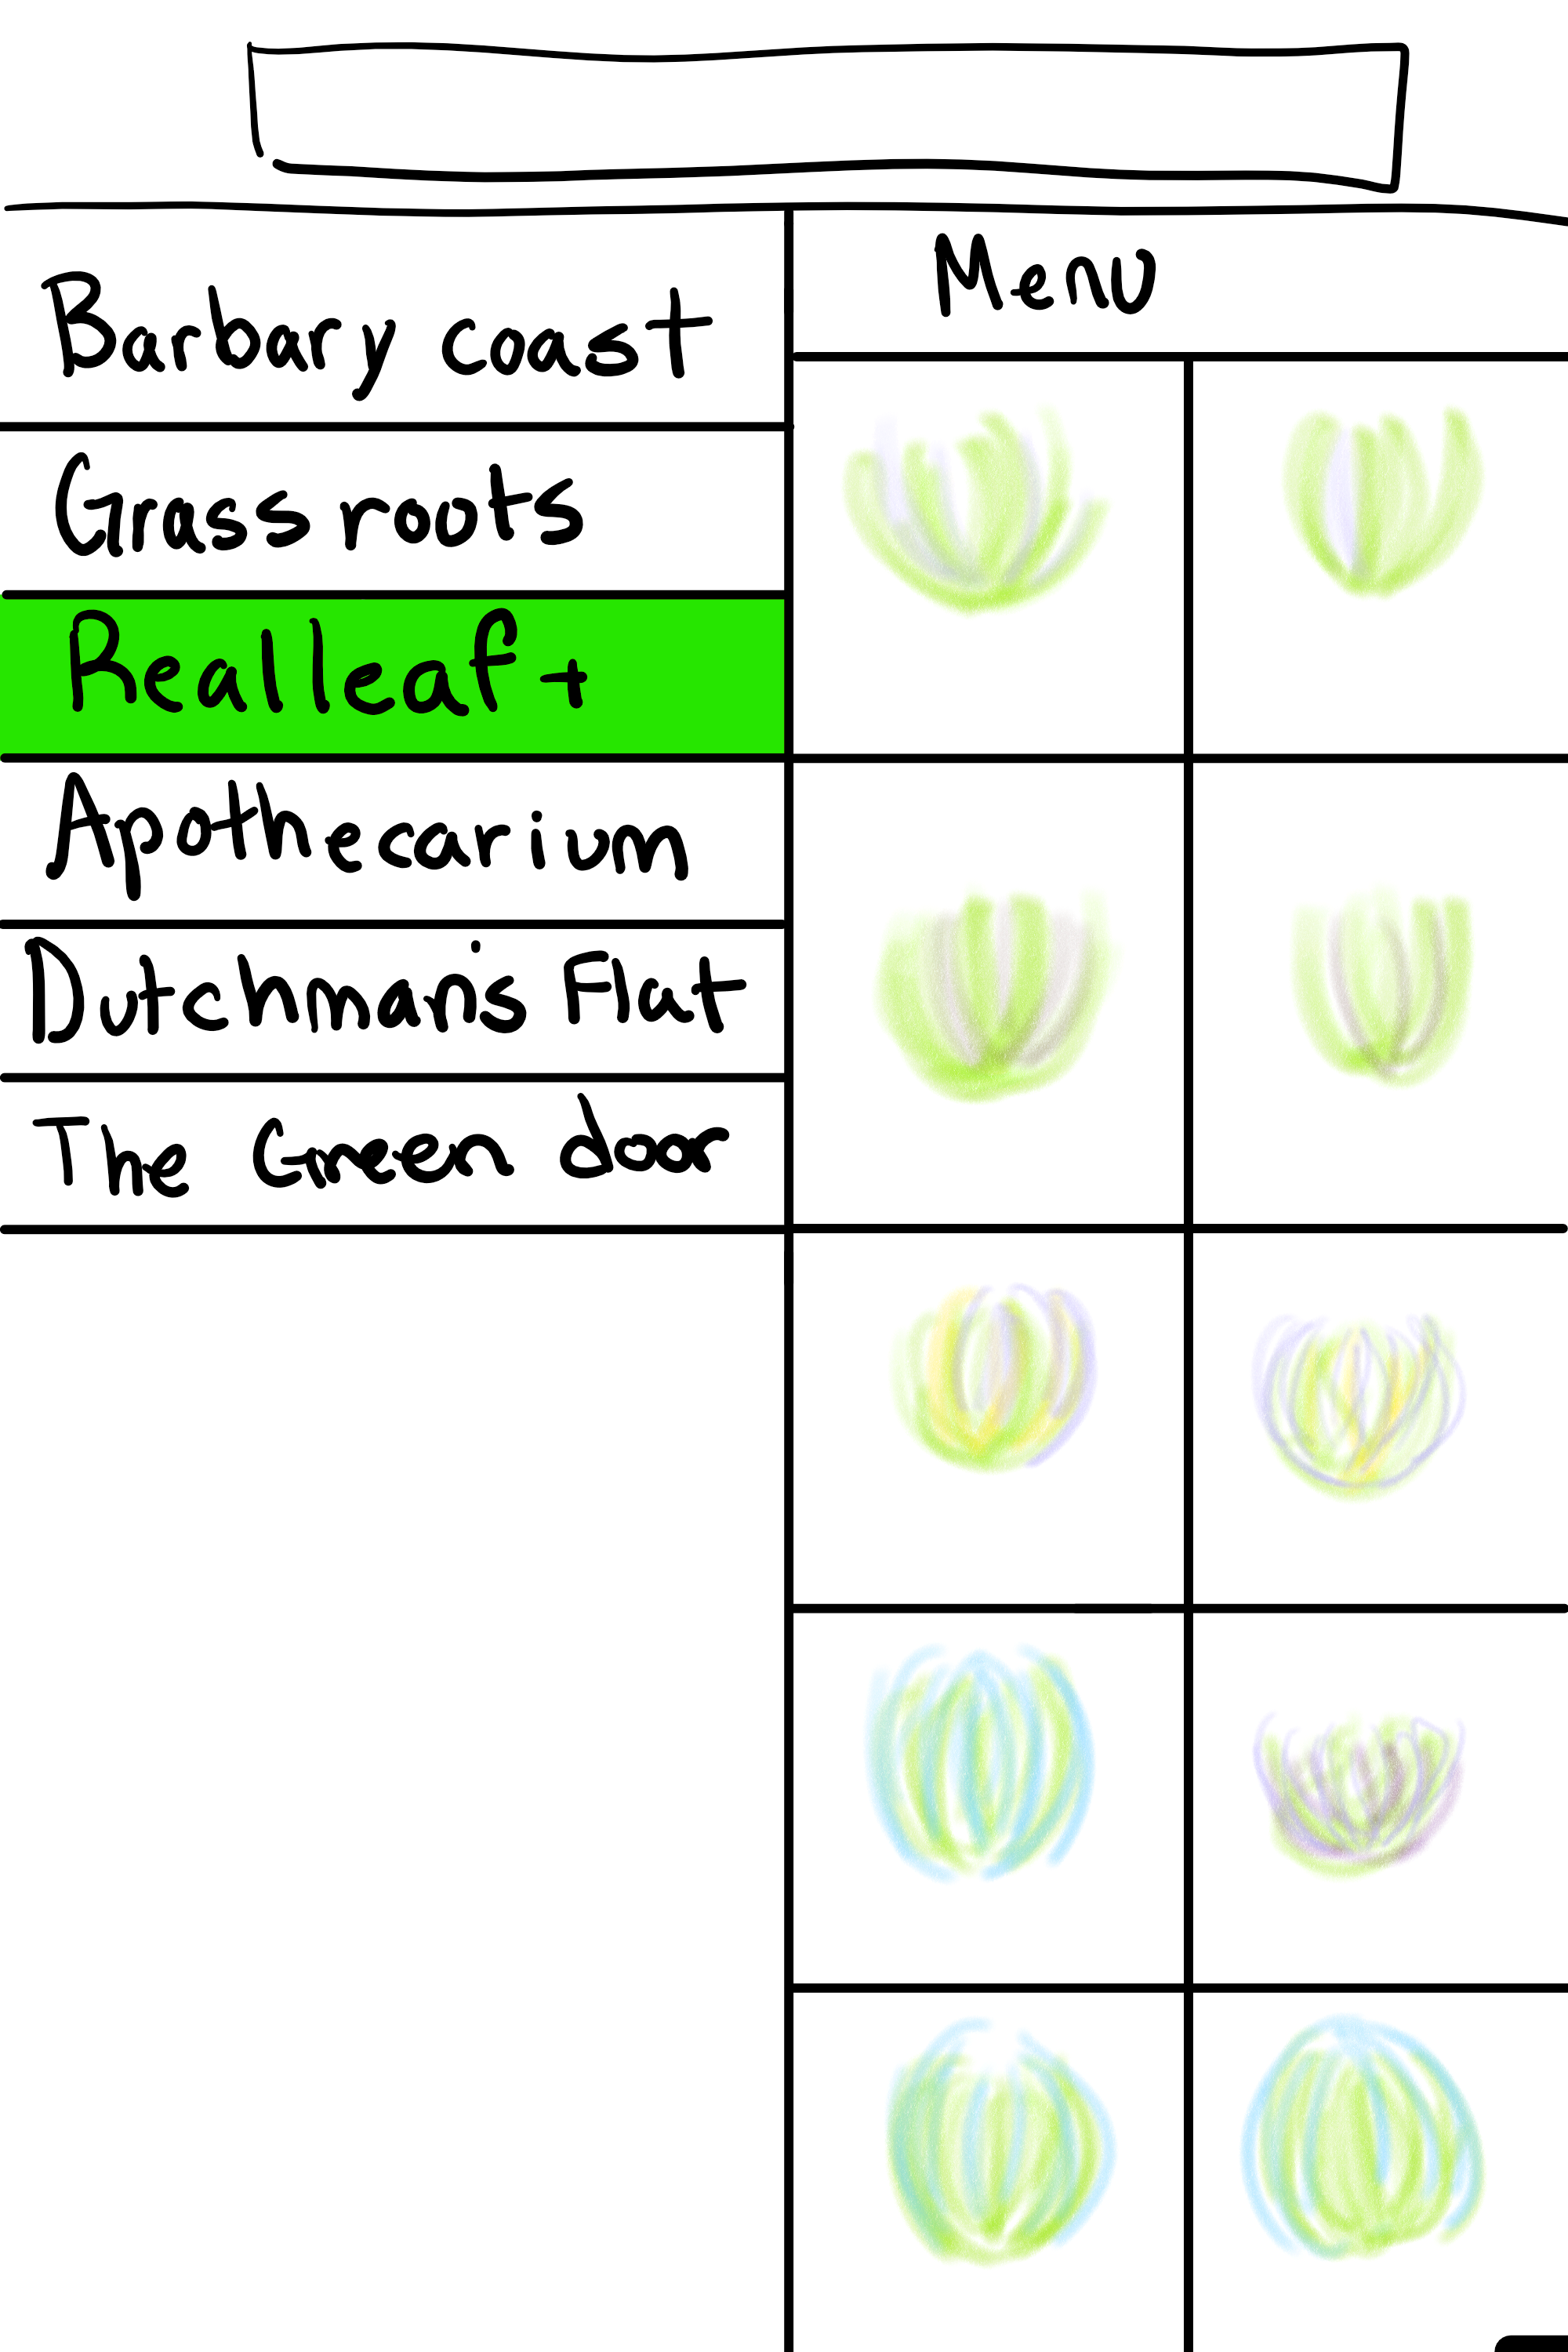 Menu
Barbary coast
Grass roots
Realleaf +
Apothecarium
Dutchman's Flat
The Green door